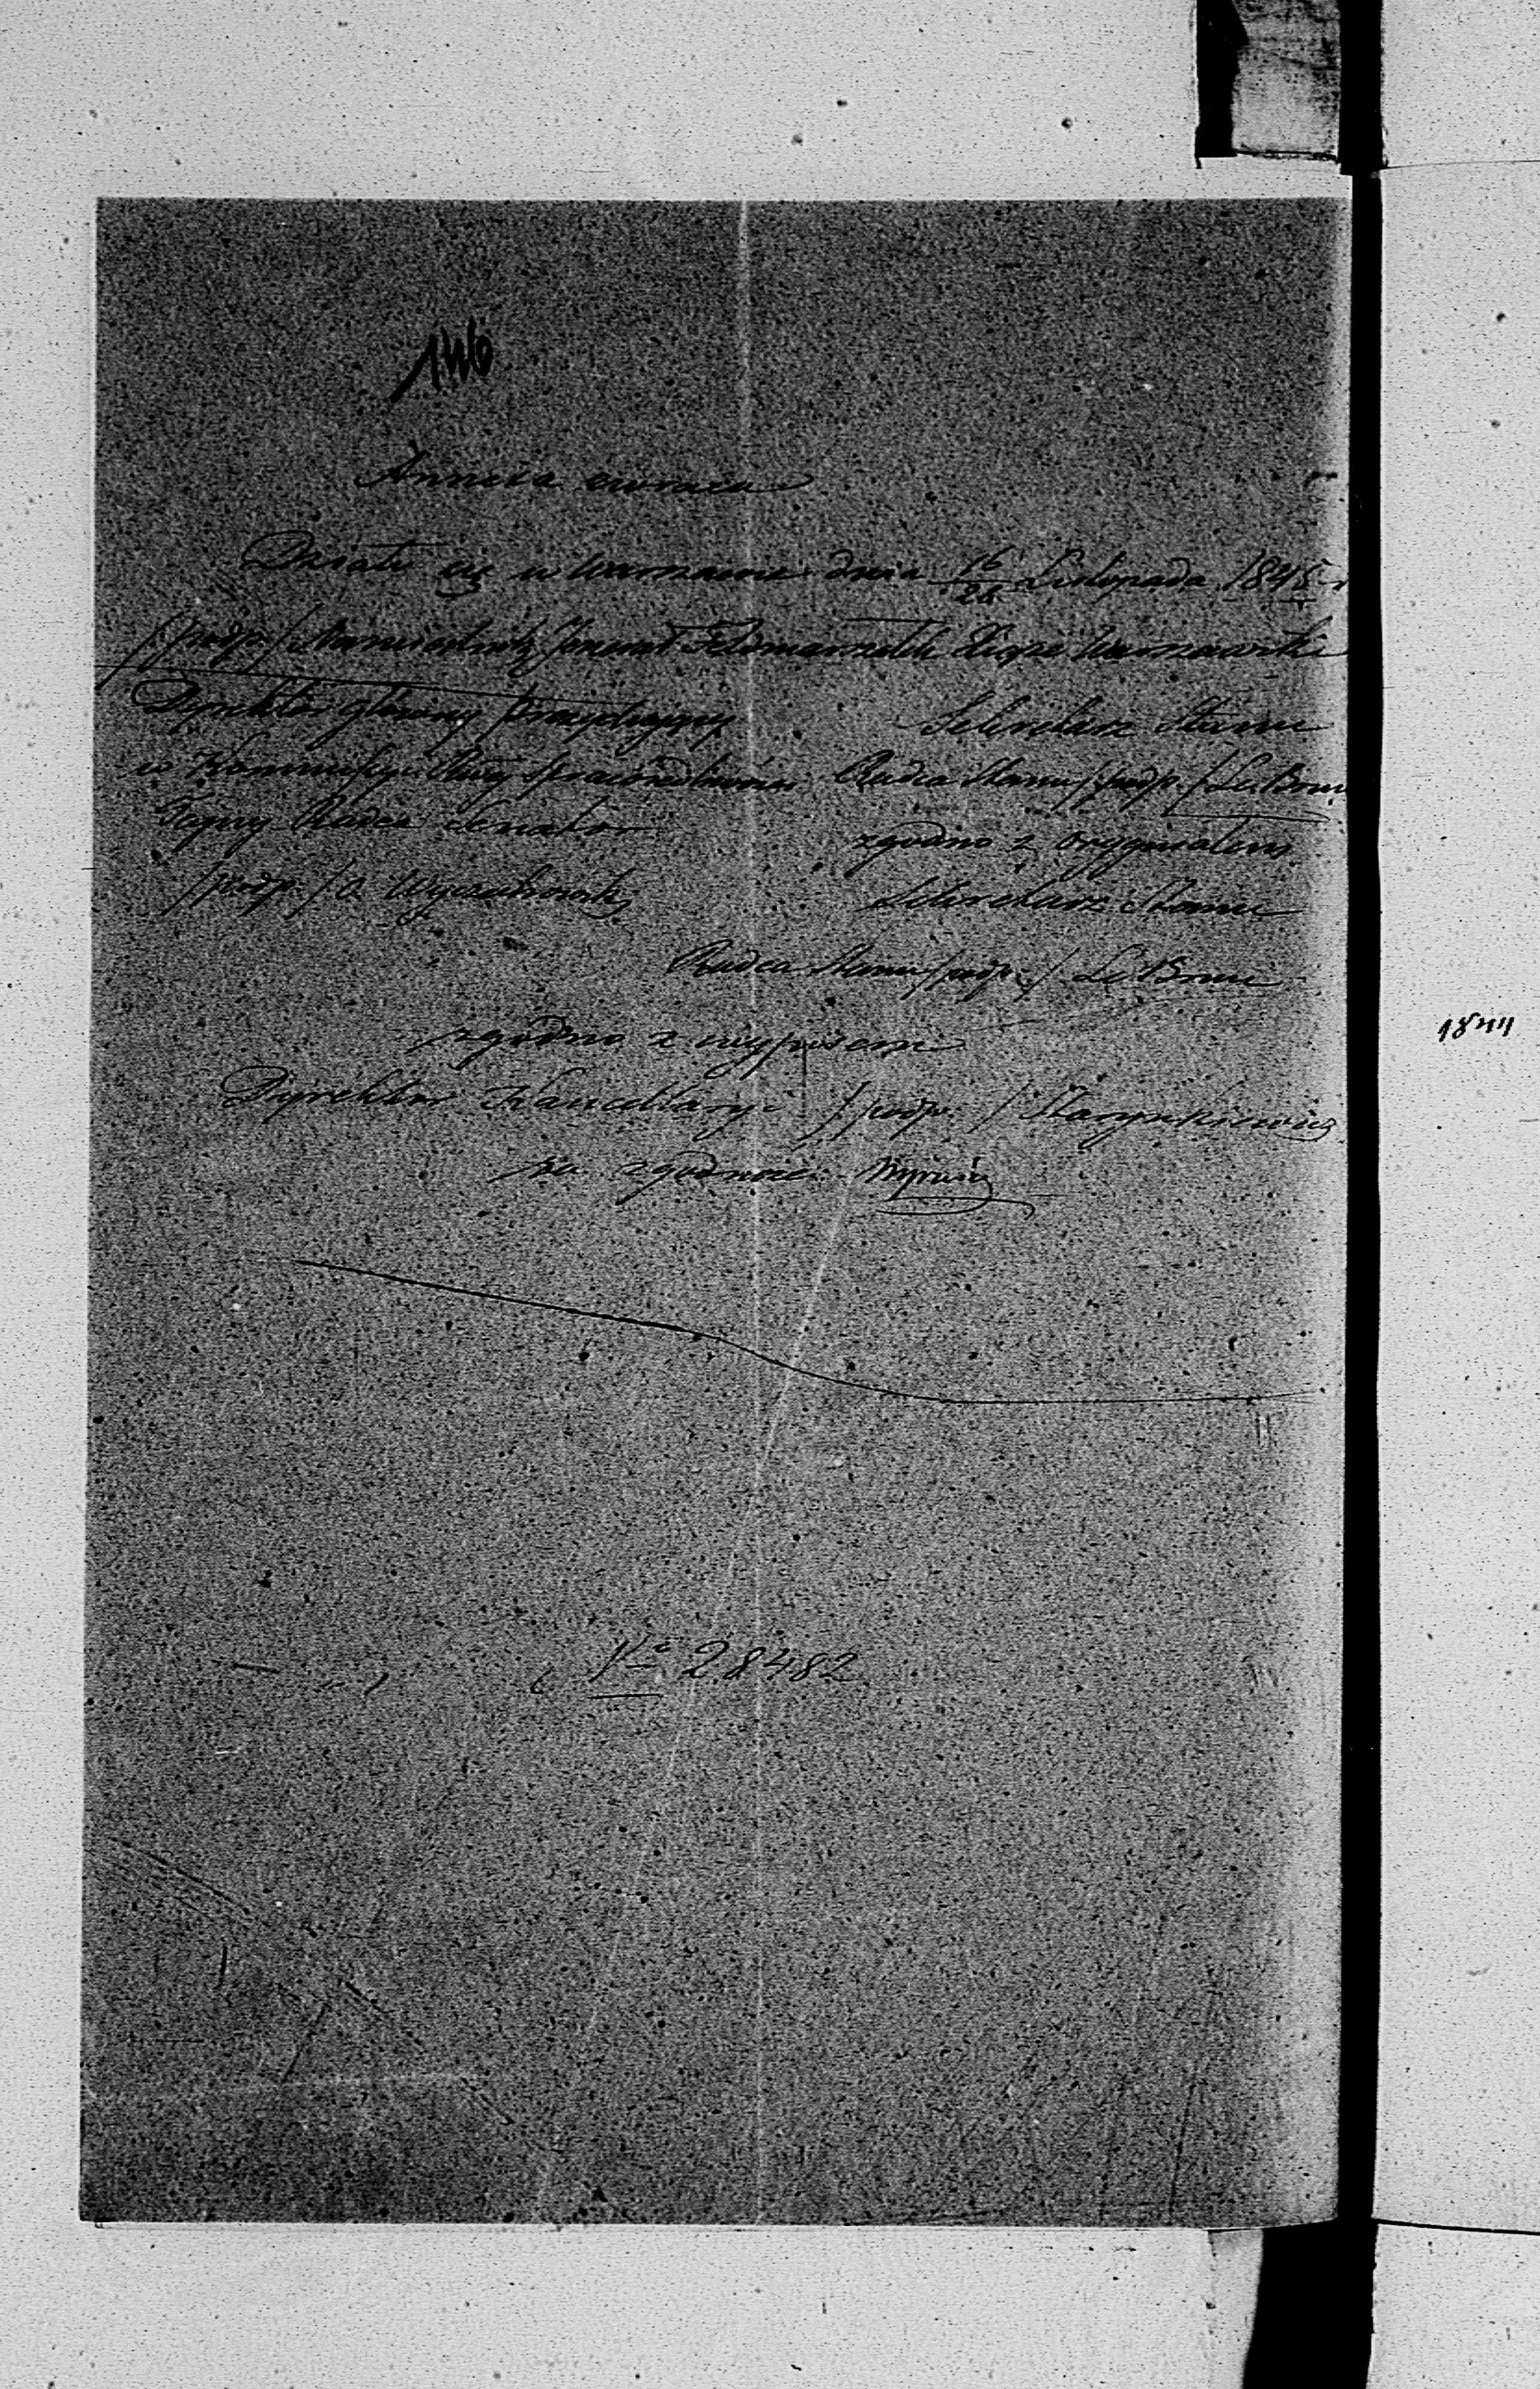 146
Annexa zwraca
Działo się w Warszawie dnia 16/28 Listopada 1845 r
/podp./ Namiestnik Jenerał Feldmarszałek Xiąże Warszawski
Dyrektor główny Prezydujący
w Kommissyi Rząd: Sprawiedliwości
Tajny Radca Senator
/podp./ O Wyczechowski
Sekretarz Stanu
Radca Stanu /podp./ Le Brun
zgodno z oryginałem
Sekretarz Stanu
Radca Stanu /podp./ Le Brun
zgodno z wypisem
Dyrektor Kancellaryi /podp./ Starynkiewicz
za zgodność
No 28482